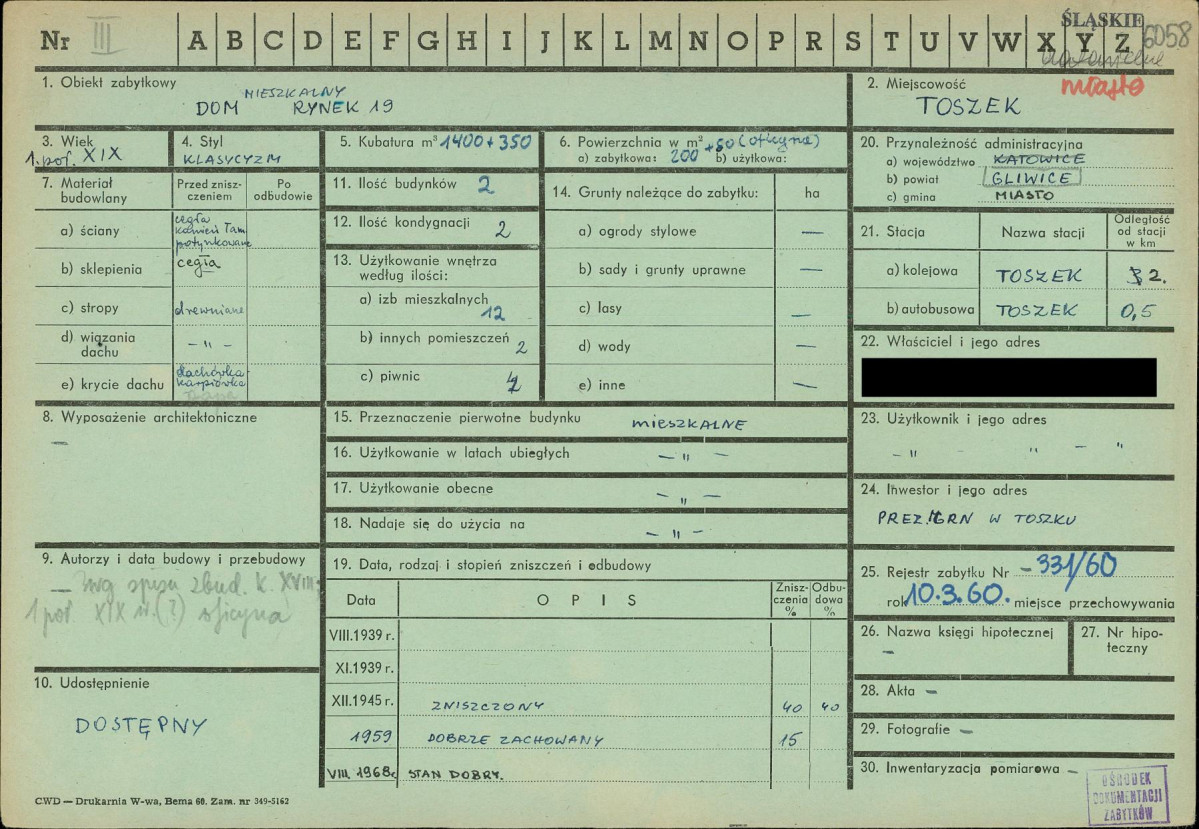 Nr III A B C D E F G H I J K L M N O P R S T U V W X Y Z
ŚLĄSKIE
6058
miasto
1. Obiekt zabytkowy
DOM MIESZKALNY RYNEK 19
2. Miejscowość
TOSZEK
3. Wiek
1. poł. XIX
4. Styl
KLASYCYZM
5. Kubatura m³ 1400 + 350
6. Powierzchnia w m² + 50 (oficyna)
a) zabytkowa: 200 b) użytkowa:
20. Przynależność administracyjna
a) województwo KATOWICE
b) powiat GLIWICE
c) gmina MIASTO
7. Materiał budowlany
Przed zniszczeniem
Po odbudowie
a) ściany
cegła
kamień łam
potynkowane
b) sklepienia cegła
c) stropy drewniane
d) wiązania dachu – „ –
e) krycie dachu
dachówka
karpiówka
papa
11. Ilość budynków 2
12. Ilość kondygnacji 2
13. Użytkowanie wnętrza
według ilości:
a) izb mieszkalnych 12
b) innych pomieszczeń 2
c) piwnic
14. Grunty należące do zabytku: ha
a) ogrody stylowe —
b) sady i grunty uprawne —
c) lasy —
d) wody —
e) inne —
21. Stacja
Nazwa stacji
Odległość
od stacji
w km
a) kolejowa TOSZEK 2.
b) autobusowa TOSZEK 0,5
22. Właściciel i jego adres
8. Wyposażenie architektoniczne
—
15. Przeznaczenie pierwotne budynku MIESZKALNE
16. Użytkowanie w latach ubiegłych – „ –
17. Użytkowanie obecne – „ –
18. Nadaje się do użycia na – „ –
23. Użytkownik i jego adres
– „ – – „
24. Inwestor i jego adres
PREZ. GRN W TOSZKU
9. Autorzy i data budowy i przebudowy
— wg spisu zbud. k. XVIII;
1 poł. XIX w. (?) oficyna
10. Udostępnienie
DOSTĘPNY
19. Data, rodzaj i stopień zniszczeń i odbudowy
Data
OPIS
Zniszczenia %
Odbudowa %
VIII.1939 r.
XI.1939 r.
XII.1945 r. ZNISZCZONY 40 40
1959 DOBRZE ZACHOWANY 15
VIII. 1968r STAN DOBRY.
25. Rejestr zabytku Nr – 331/60
rok 10.3.60. miejsce przechowywania
26. Nazwa księgi hipotecznej
–
27. Nr hipoteczny
28. Akta –
29. Fotografie –
30. Inwentaryzacja pomiarowa –
CWD — Drukarnia W-wa, Bema 60. Zam. nr 349-5162
OŚRODEK
DOKUMENTACJI
ZABYTKÓW